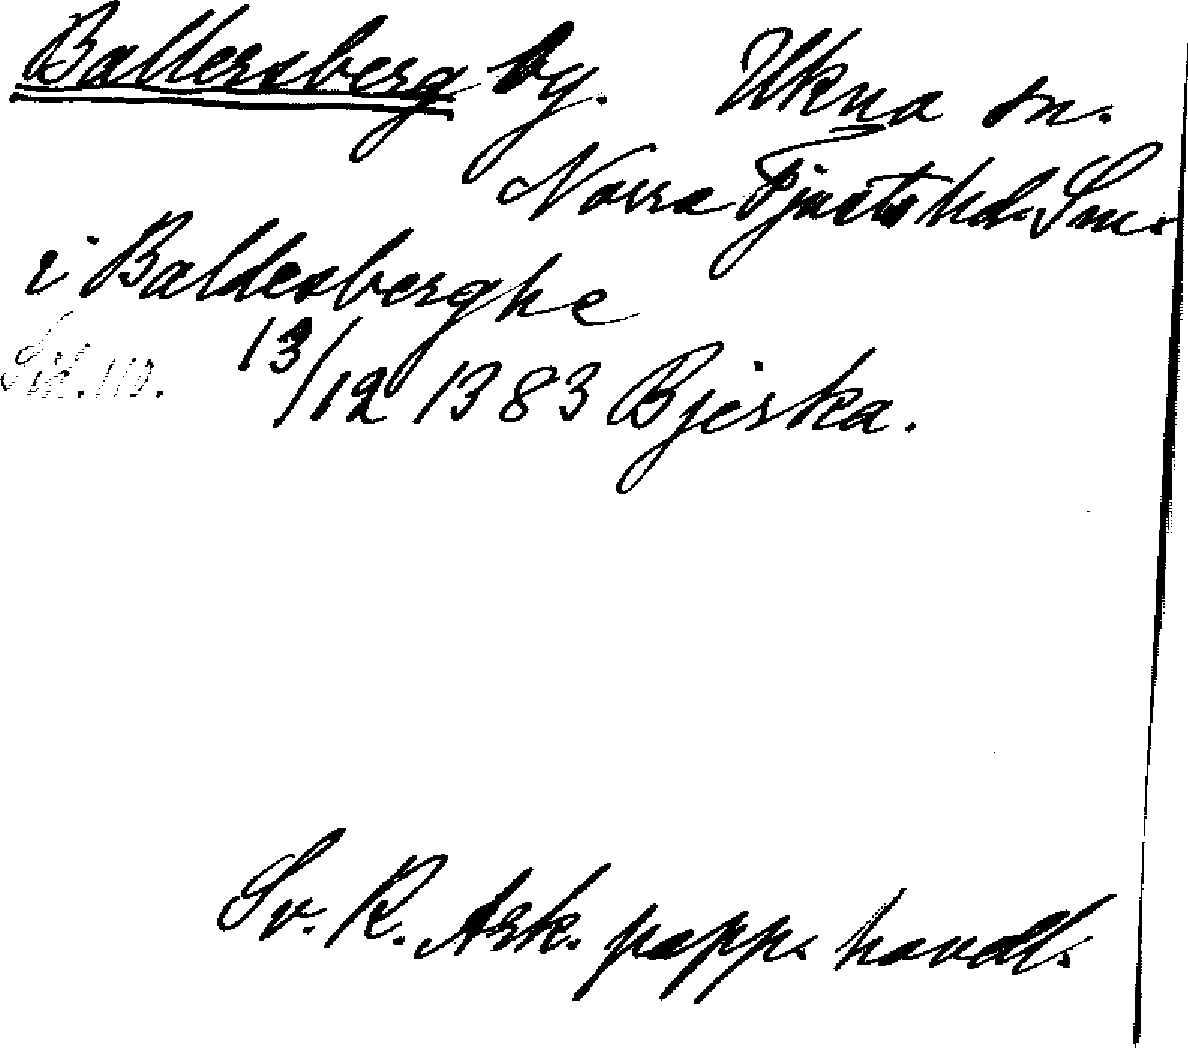 Ballersberg by. Ukna sn.
Norra Tjusts hd. Sm.
i Baldesberghe
13/12 1383 Bjerka.
Sv. R. Ark. papp. handl.